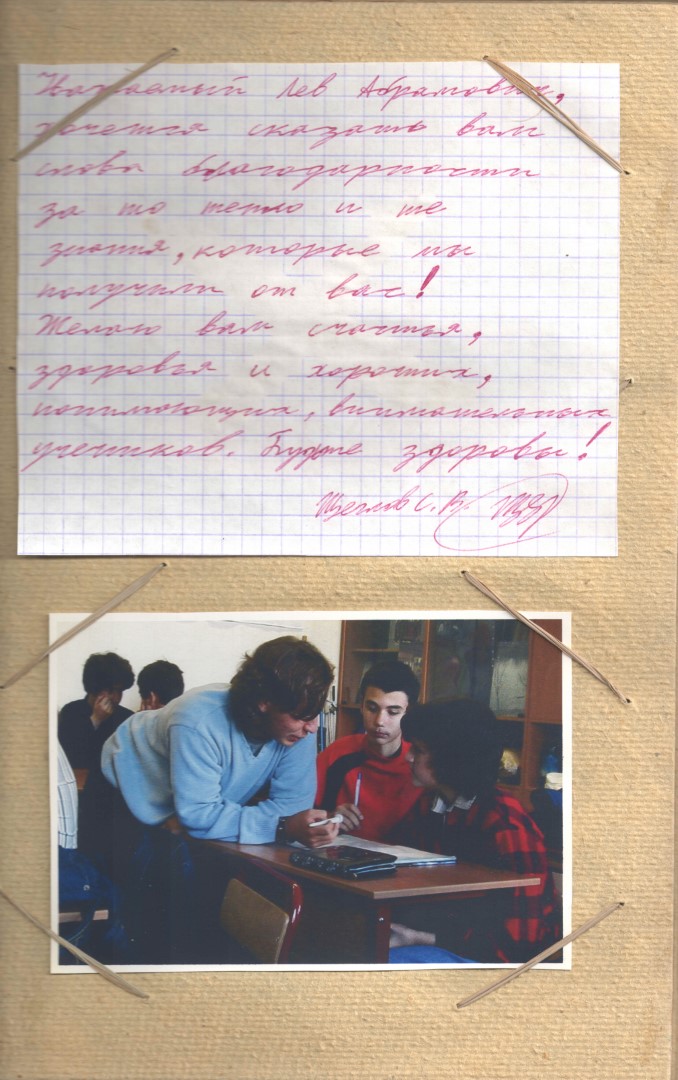 Уважаемый Лев Абрамович,
хочется сказать вам
слова благодарности
за то тепло и те
знания, которые мы
получили от вас!
Желаю вам счастья,
здоровья и хороших,
понимающих, внимательных
учеников. Будьте здоровы!
Щеглов С. В.